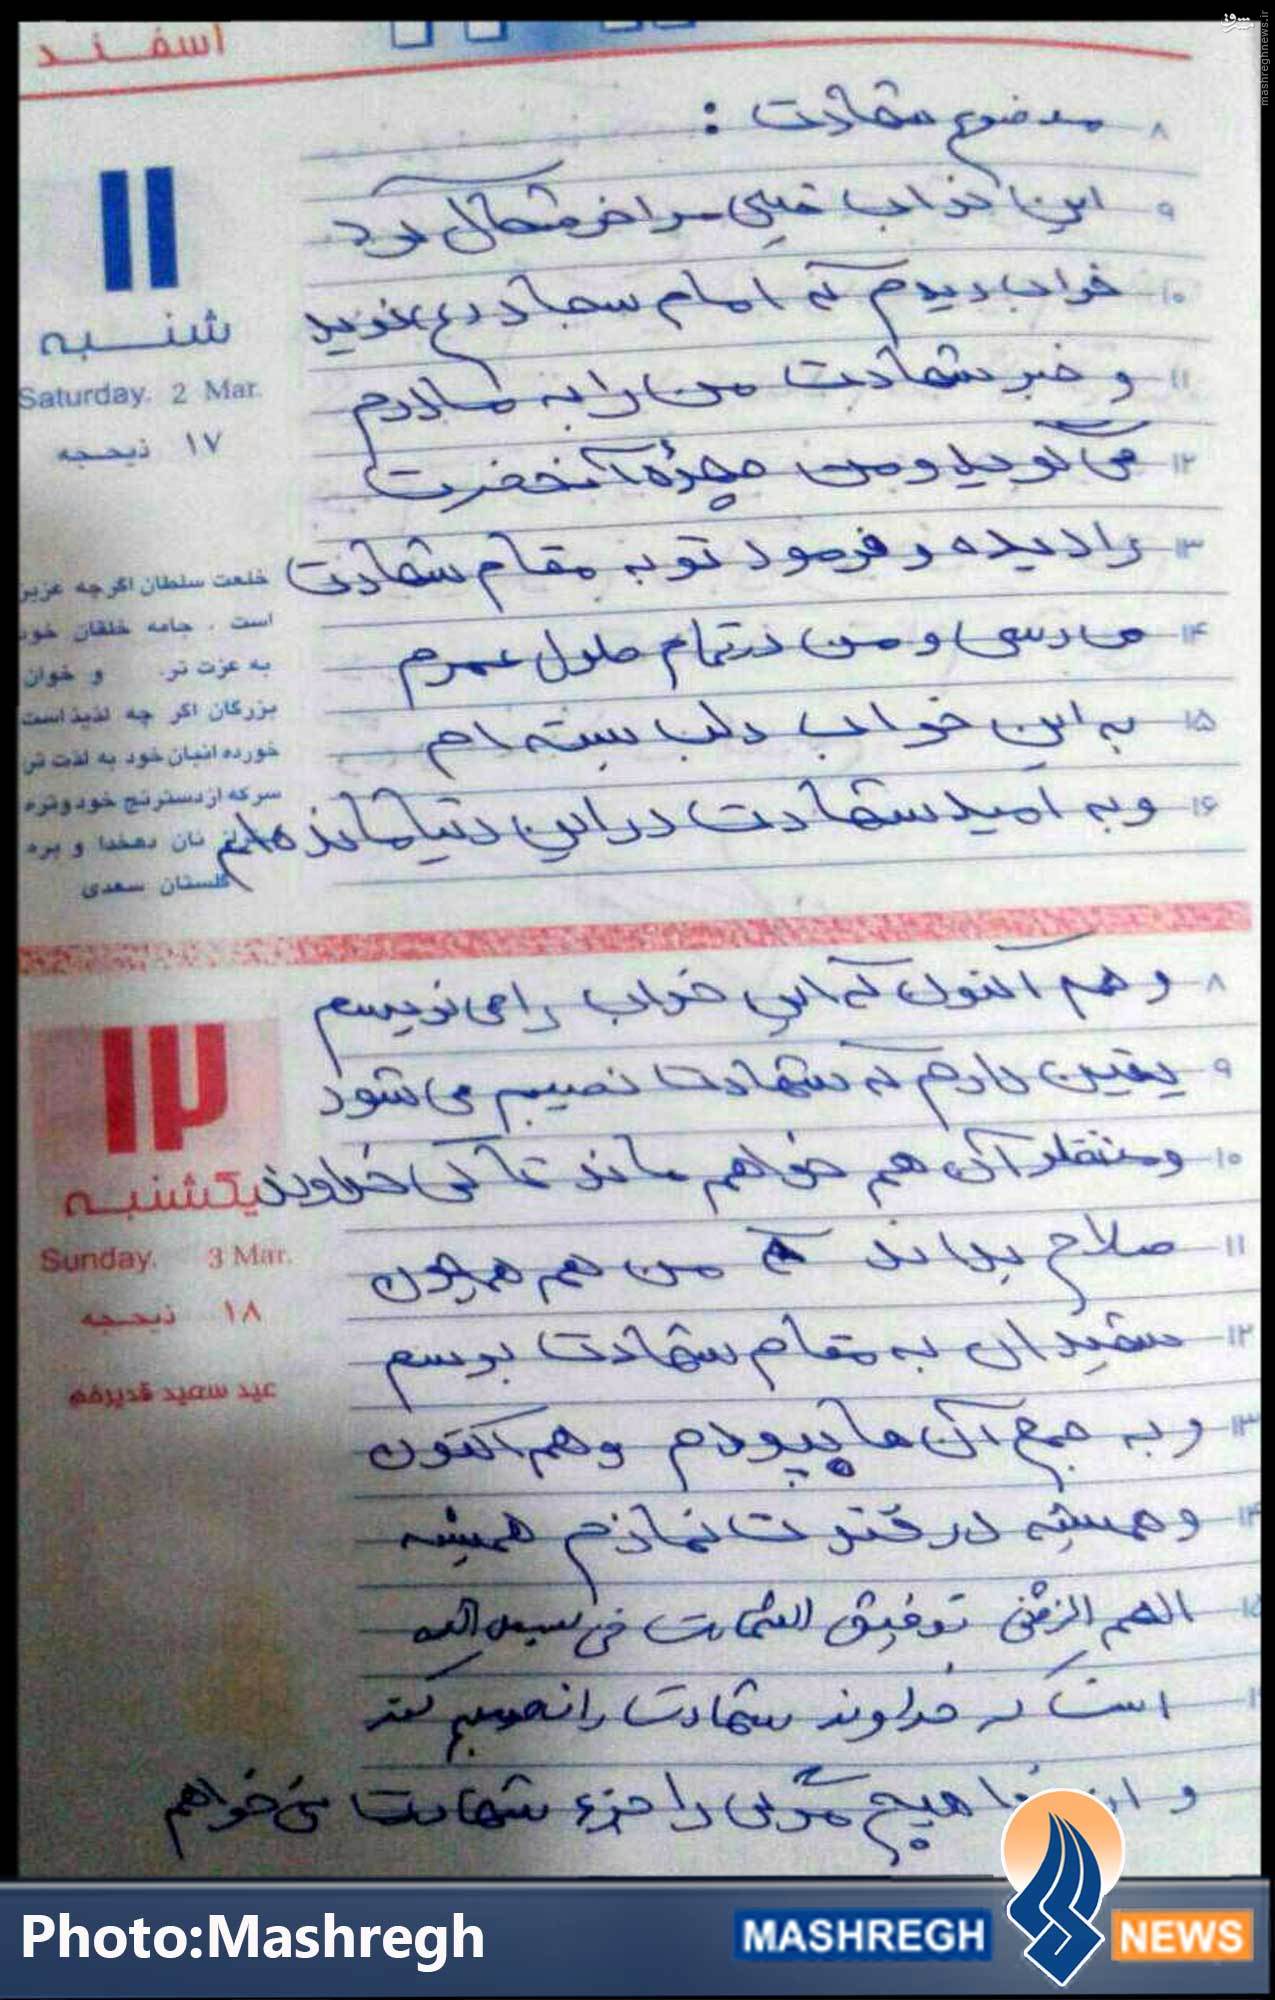 مشرق
mashreghnews.ir
اسفند
موضوع شهادت :
این خواب خیلی مرا خوشحال کرد
خواب دیدم که امام سجاد (ع) نوید
و خبر شهادت من را به مادرم
می گوید و من چهره آنحضرت
را دیده و فرمود تو به مقام شهادت
می رسی و من در تمام طول عمرم
به این خواب دلبسته ام
و به امید شهادت در این دنیا مانده ام
۸
۹
۱۰
۱۱
۱۲
۱۳
۱۴
۱۵
۱۶
۱۱
شنبه
Saturday. 2 Mar.
۱۷ ذیحجه
خلعت سلطان اگر چه عزیز
است . جامه خلقان خود
به عزت تر. و خوان
بزرگان اگر چه لذیذ است
خورده انبان خود به لذت تر
سرکه از دسترنج خود و تره
نان دهخدا و بره
گلستان سعدی
و هم اکنون که این خواب را می نویسم
یقین دارم که شهادت نصیبم می شود
و منتظر آن هم خواهم ماند تا کی خداوند
صلاح بداند که من هم همچون
شهیدان به مقام شهادت برسم
و به جمع آن ها بپیوندم و هم اکنون
و همیشه در قنوت نمازم همیشه
الهم الرزقنی توفیق الشهادت فی سبیل الله
است که خداوند شهادت را نصیبم کند
و از خدا هیچ مرگی را جزء شهادت نمی خواهم
۸
۹
۱۰
۱۱
۱۲
۱۳
۱۴
۱۵
۱۲
یکشنبه
Sunday. 3 Mar.
۱۸ ذیحجه
عید سعید غدیرخم
Photo:Mashregh
MASHREGH NEWS